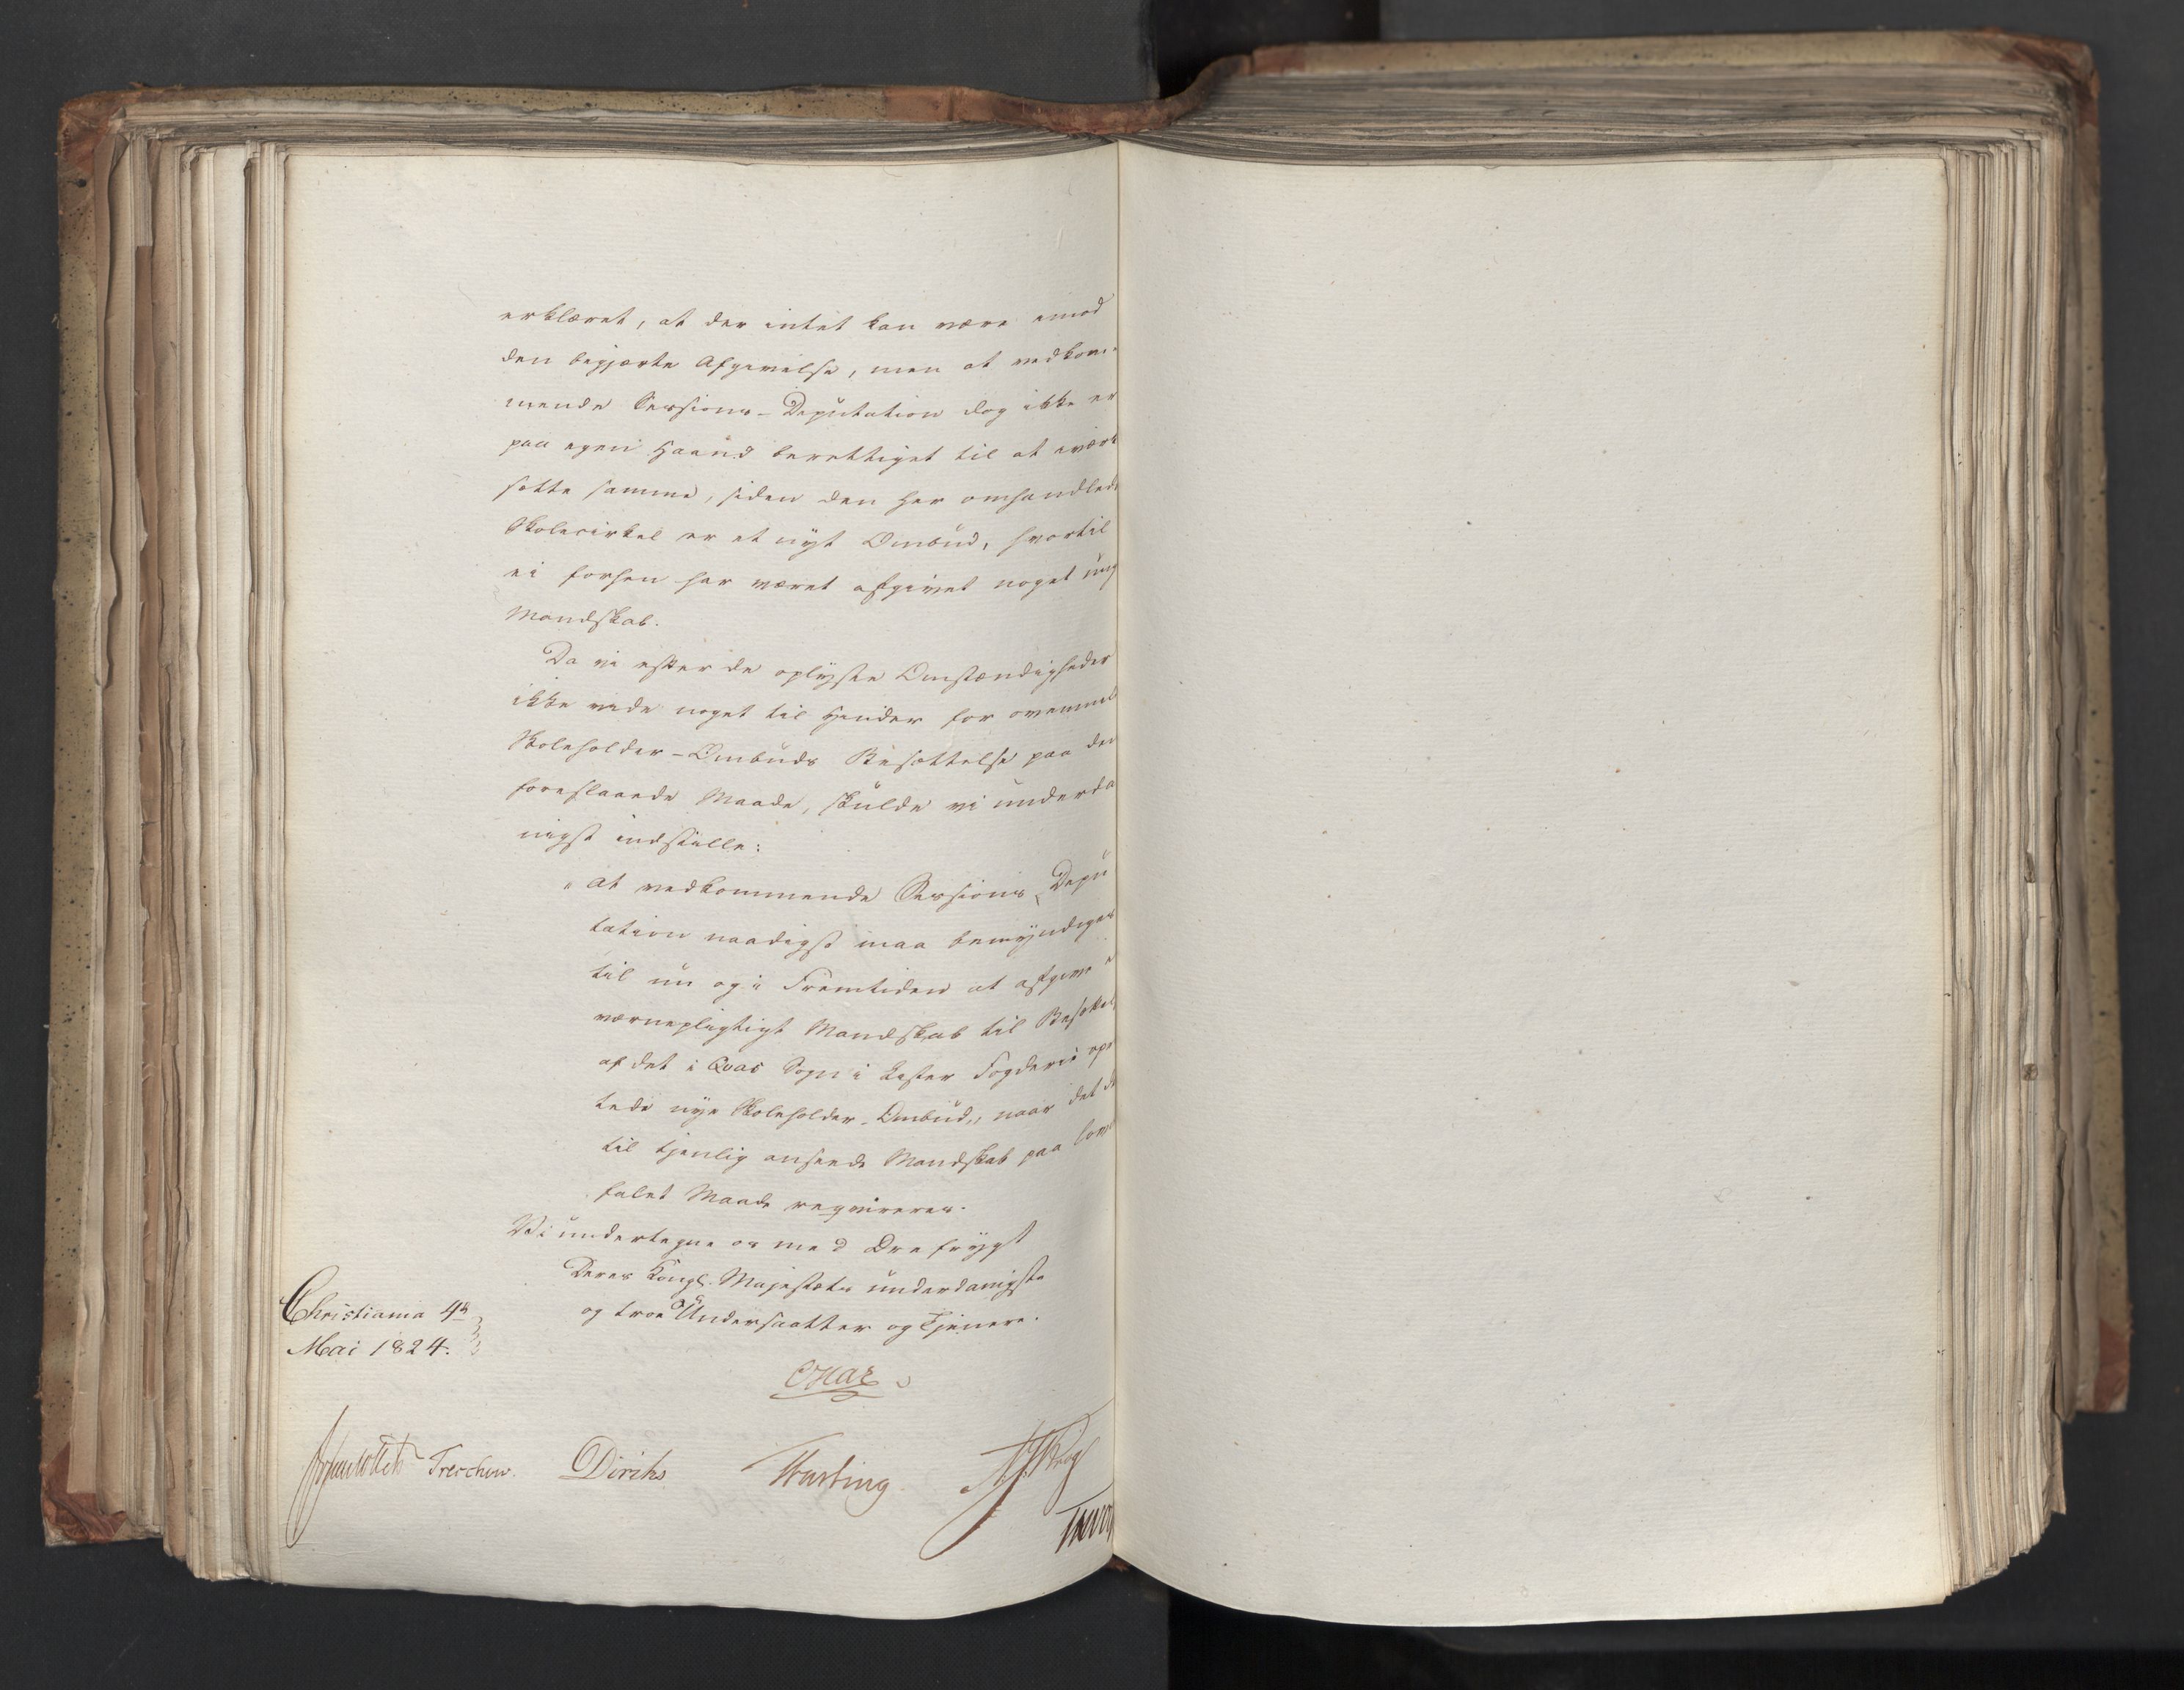 erklæret, at der intet kan være imod
den begjærte Afgivelse, men at vedkom-
mende Sessions-Deputation dog ikke er
paa egen Haand berettiget til at iværk
sætte samme, siden den her omhandlede
Skolecirkel er et nyt Ombud, hvortil
ei forhen har været afgivet noget ung
Mandskab.
Da vi efter de oplyste Omstændigheder
ikke vide noget til Hinder for ovenmeld
Skoleholder-Ombuds Besættelse paa den
foreslaaede Maade, skulde vi underda
nigst indstille:
"at vedkommende Sessions-Depu
tation naadigst maa bemyndiges
til nu og i Fremtiden at afgive
værnepligtigt Mandskab til Besættel
af det i Qvas Sogn i Lister Fogderie opr
tede nye Skoleholder-Ombud, naar det d
til tjenlig ansende Mandskab paa lov
falet Maade reqvireres.
Vi undertegne os med Dre frygt
Deres Kongl. Majestæts underdanigste
og troe Undersaatter og Tjenere.
Christiania 4de
Mai 1824.
Treschow. Diriks